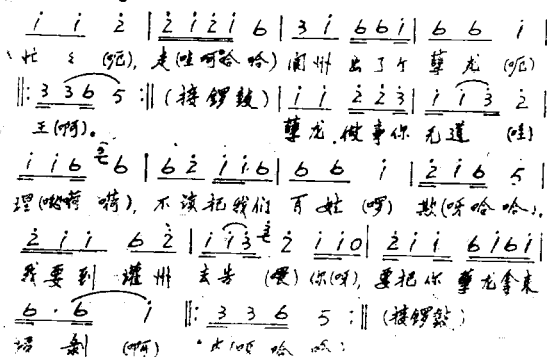 i i 2 | 2 i 2 i 6 | 3 i 6 6 i | 6 6 i |
忙 (呃), 走(哇呵哈哈) 阆州 出了个 孽龙 (呃)
‖: 3 3 6 5 :‖ (接锣鼓) | i i 2 2 3 | i i 3 2 |
王(啊)。 孽龙.做事你 无道 (哇)
i i 6 6 | 6 2 i i·6 | 6 6 i | 2 i 6 5 |
理 不该把我们 百姓 (啰) 欺(呀哈哈),
2 i i 6 2 | i i 3 2 i i 0 | 2 i i 6 i 6 i |
我要到 灌州 去告 你(呀), 要把你 孽龙拿来
6 · 6 i ‖: 3 3 6 5 :‖ (接锣鼓)
剥 (啊) 哈哈